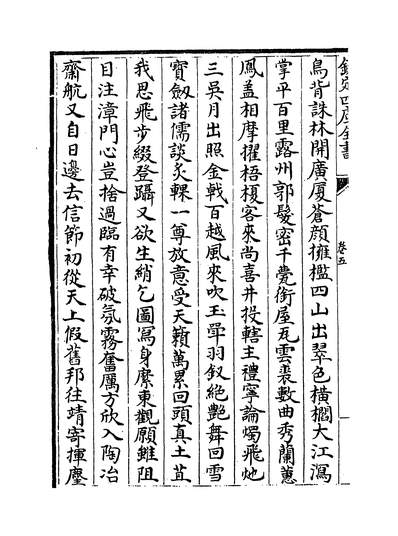 欽定四庫全書
卷五
鳥背誅林開廣厦蒼顔擁檻四山出翠色橫擱大江瀉
掌平百里露州郭髮密千甍銜屋瓦雲裘數曲秀蘭蕙
鳳盖相摩擢梧檟客來尚喜井投轄主禮寧論燭飛灺
三吳月出照金㦸百越風來吹玉斝羽釵絶艷舞回雪
寳劔諸儒談炙輠一尊放意受天籟萬累回頭真土苴
我思飛步綴登躡又欲生綃乞圖寫身縻東觀願雖阻
目注漳門心豈捨過臨有幸破氛霧奮厲方欣入陶冶
齋航又自日邊去信節初從天上假舊邦往靖寄揮麈